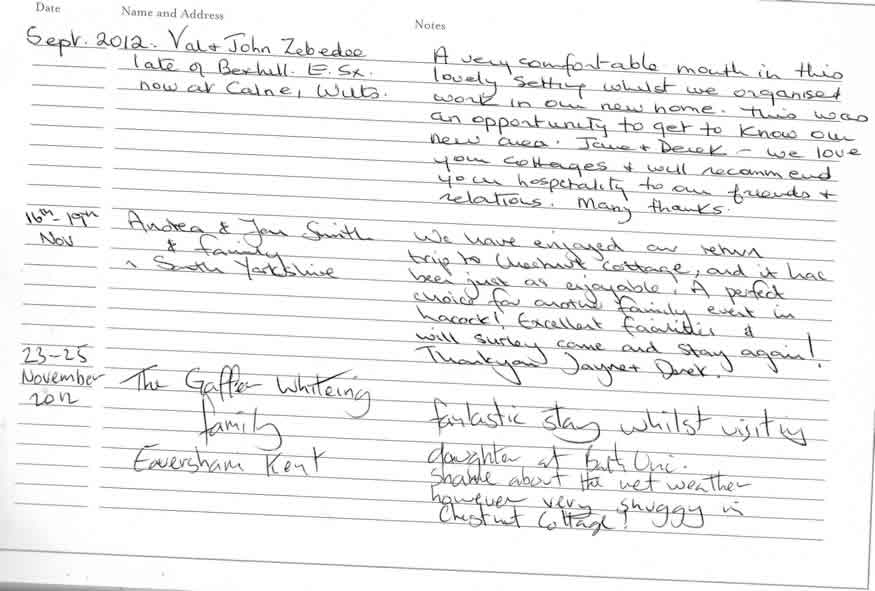 Date Name and Address Notes
Sept. 2012. Val + John Zebedee
late of Bexhill. E. Sx.
now at Calne, Wilts.
A very comfortable month in this
lovely setting whilst we organised
work in our new home. This was
an opportunity to get to know our
new area. Jane + Derek – we love
your cottages + will recommend
your hospitality to our friends +
relations. Many thanks.
16th - 19th
Nov
Andrea & Jon Smith
& family
South Yorkshire
We have enjoyed our return
trip to Chesnut cottage, and it has
been just as enjoyable. A perfect
choice for another family event in
Lacock! Excellent facilities &
will surley come and stay again!
Thankyou Jayne + Derek.
23-25
November
2012
The Gaffer Whiteing
family
Faversham Kent
fantastic stay whilst visiting
daughter at Bath Uni.
Shame about the wet weather
however very snuggy in
Chestnut Cottage!